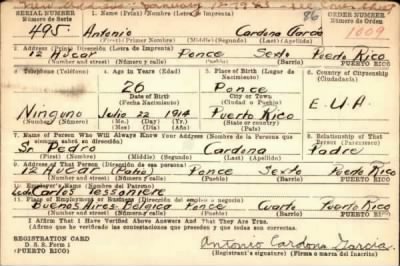 New Address: January 12, 1943
SERIAL NUMBER 1. Name (Print) Nombre (Letra de Imprenta) 86 ORDER NUMBER
Número de Serie Número de Orden
495 Antonio Cardona García 1009
(First) Primer Nombre) (Middle) (Segundo) (Last) (Apellido)
2 Address (Print) Dirección (Letra de Imprenta)
12 Aucar Ponce Sexto Puerto Rico
(Number and street) (Número y calle) (Town) (Pueblo) (Ward) (Barrio) PUERTO RICO
3. Telephone (Teléfono) 4. Age in Years (Edad) 5. Place of Birth (Lugar de Nacimiento) 6. Country of Citizenship (Ciudadanía)
26 Ponce
Date of Birth City or Town
(Fecha Nacimiento) (Ciudad o Pueblo) E.U.A.
Ninguno Julio 22 1914 Puerto Rico
(Number) (Número) (Mo.) (Day) (Yr.) (State or country)
(Mes) (Día) (Año) (Estado o país)
7. Name of Person Who Will Always Know Your Address (Nombre de la Persona que siempre sabrá su dirección) 8. Relationship of That Person (Parentesco)
Sr. Pedro Cardona Padre
(First) (Primer Nombre) (Middle) (Segundo) (Last) (Apellido)
9. Address of That Person (Dirección de esa persona)
12 Aucar (Patio) Ponce Sexto Puerto Rico
(Number and street) (Número y calle) (Town) (Pueblo) (Ward) (Barrio) PUERTO RICO
10. Employer's Name (Nombre del Patrono)
Carlos Tessoniere
11. Place of Employment or Business (Dirección del empleo o negocio)
Buenos Aires-Belgica Ponce Cuarto Puerto Rico
(Number and street) (Número y calle) (Town) (Pueblo) (Ward) (Barrio) PUERTO RICO
I Affirm That I Have Verified Above Answers and That They Are True.
(Afirmo que he verificado las contestaciones que preceden y que todas son ciertas.)
REGISTRATION CARD
D. S. S. Form 1
PUERTO RICO
Antonio Cardona García
(Registrant's signature) (Firma o marca del Inscrito)